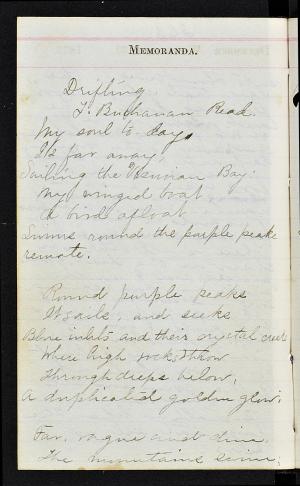 MEMORANDA.
Drifting.
T. Buchanan Read.
My soul to day,
Is far away,
Sailing the Vesuvian Bay:
My winged boat,
A bird afloat
Swims round the purple peaks
remote.
Round purple peaks
It sails, and seeks
Blue inlets and their crystal creeks
Where high rocks throw
Through deeps below,
A duplicated golden glow.
Far, vague and dim,
The mountains swim;